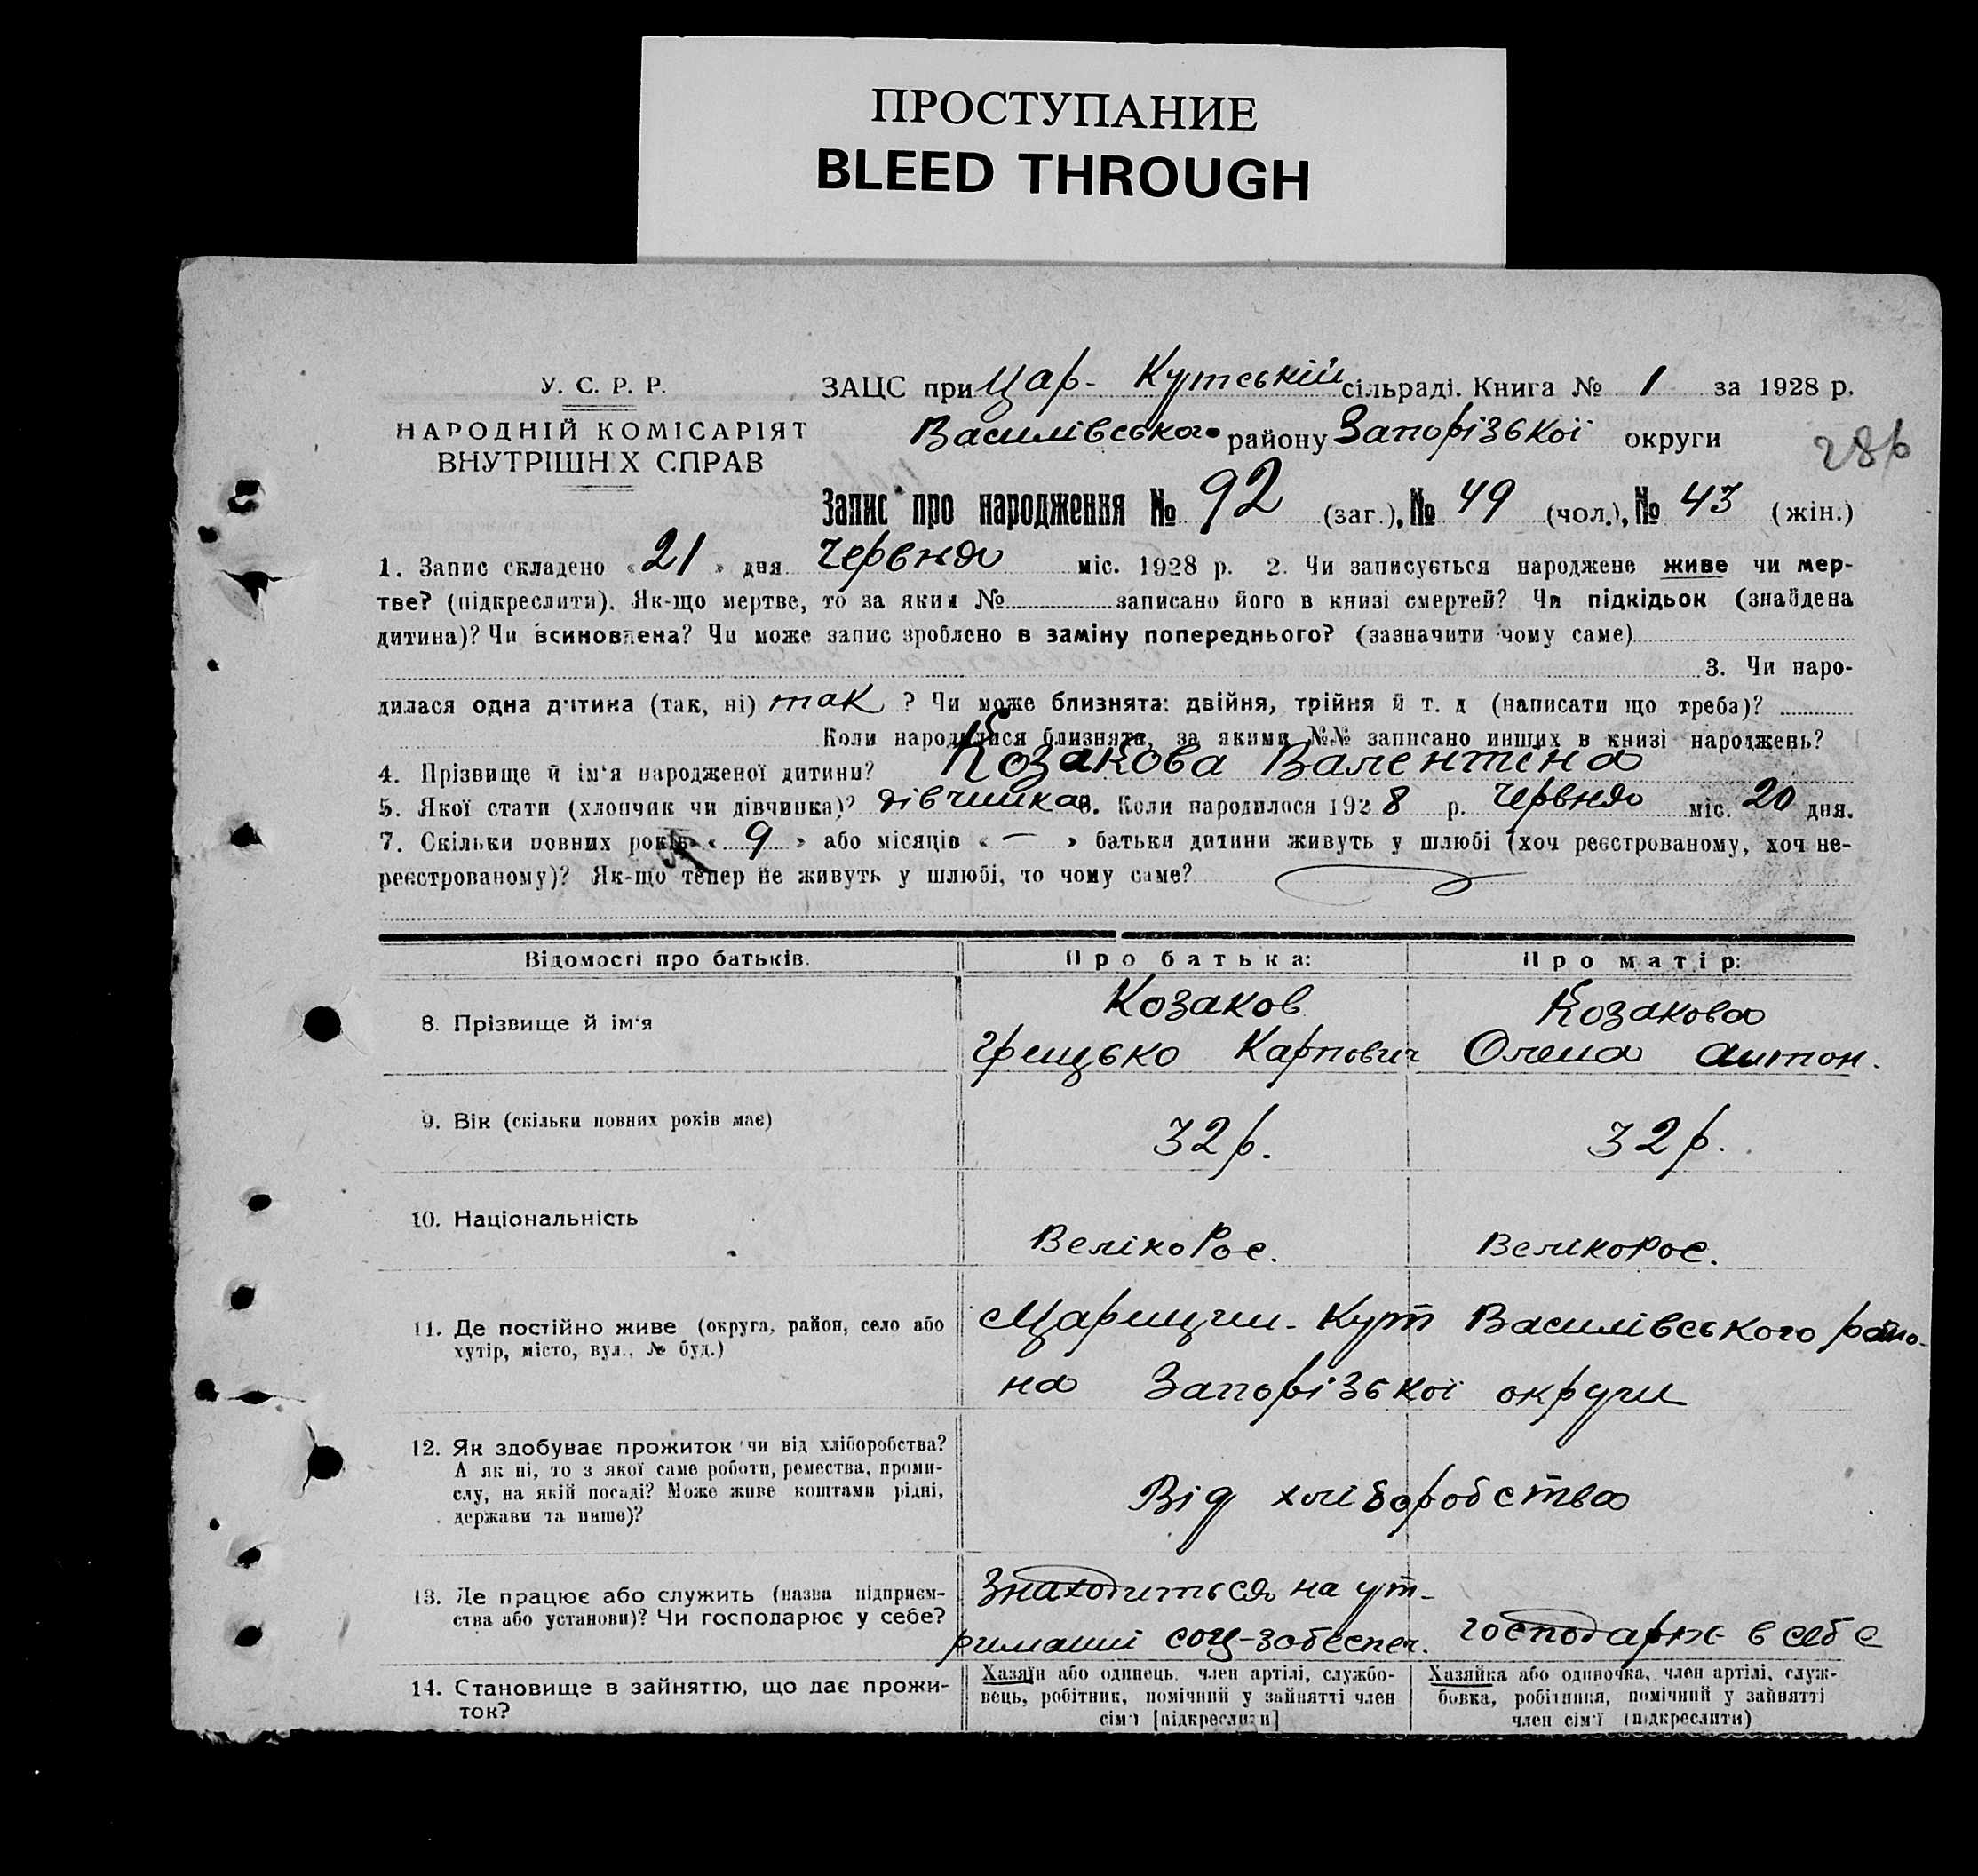 ПРОСТУПАНИЕ
BLEED THROUGH
У. С. Р. Р.
НАРОДНІЙ КОМІСАРІЯТ
ВНУТРІШНІХ СПРАВ
ЗАЦС при Цар- Кутській сільраді. Книга № 1 за 1928 р.
Василівського району Запорізької округи
286
Запис про народження № 92 (заг.), № 49 (чол.), № 43 (жін.)
1. Запис складено «21» дня червня міс. 1928 р. 2. Чи записується народжене живе чи мер-
тве? (підкреслити). Як-що мертве, то за яким № записано його в книзі смертей? Чи підкідьок (знайдена
дитина)? Чи всиновлена? Чи може запис зроблено в заміну попереднього? (зазначити чому саме)
3. Чи наро-
дилася одна дитина (так, ні) так ? Чи може близнята: двійня, трійня й т. д (написати що треба)?
Коли народилися близнята, за якими №№ записано инших в книзі народжень?
4. Прізвище й ім'я народженої дитини? Козакова Валентина
5. Якої стати (хлопчик чи дівчинка)? дівчинка 6. Коли народилося 1928 р. червня міс. 20 дня.
7. Скільки повних років «9» або місяців « — » батьки дитини живуть у шлюбі (хоч реєстрованому, хоч не-
реєстрованому)? Як-що тепер не живуть у шлюбі, то чому саме?
Відомості про батьків. Про батька: Про матір:
8. Прізвище й ім'я
Козаков Козакова
Грицько Карпович Олена Антон.
9. Вік (скільки повних років має) 32 р. 32 р.
10. Національність Велікорос. Велікорос.
11. Де постійно живе (округа, район, село або
хутір, місто, вул., № буд.)
Царицин-Кут Василівського райо-
на Запорізької округи
12. Як здобуває прожиток чи від хліборобства?
А як ні, то з якої саме роботи, ремества, проми-
слу, на якій посаді? Може живе коштами рідні,
держави та инше)?
Від хліборобства
13. Де працює або служить (назва підприєм-
ства або установи)? Чи господарює у себе?
Знаходиться на ут-
риманні соц-забеспеч. господарює в себе
14. Становище в зайняттю, що дає прожи-
ток?
Хазяїн або одинець, член артілі, службо-
вець, робітник, помічний у зайнятті член
сім'ї [підкреслити]
Хазяйка або одиночка, член артілі, служ-
бовка, робітниця, помічний у зайнятті
член сім'ї (підкреслити)